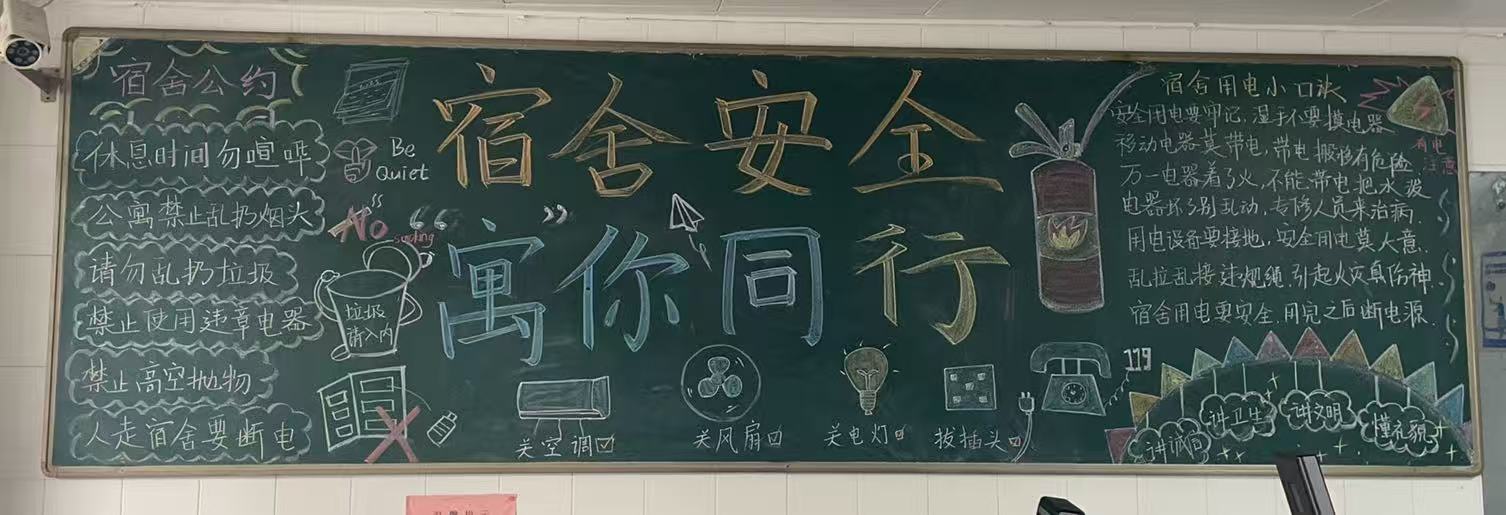 宿舍公约
休息时间勿喧哗
公寓禁止乱扔烟头
请勿乱扔垃圾
禁止使用违章电器
禁止高空抛物
人走宿舍要断电
Be
Quiet
No
smoking
垃圾
请入内
宿舍安全
“寓”你同行
关空调
关风扇
关电灯
拔插头
119
宿舍用电小口诀
安全用电要牢记,湿手不要摸电器
移动电器莫带电,带电搬移有危险
万一电器着了火,不能带电把水泼
电器坏了别乱动,专修人员来治病.
用电设备要接地,安全用电莫大意.
乱拉乱接,引起火灾真伤神.
宿舍用电要安全,用完之后断电源.
有电
注意
讲诚信
讲卫生
讲文明
懂礼貌